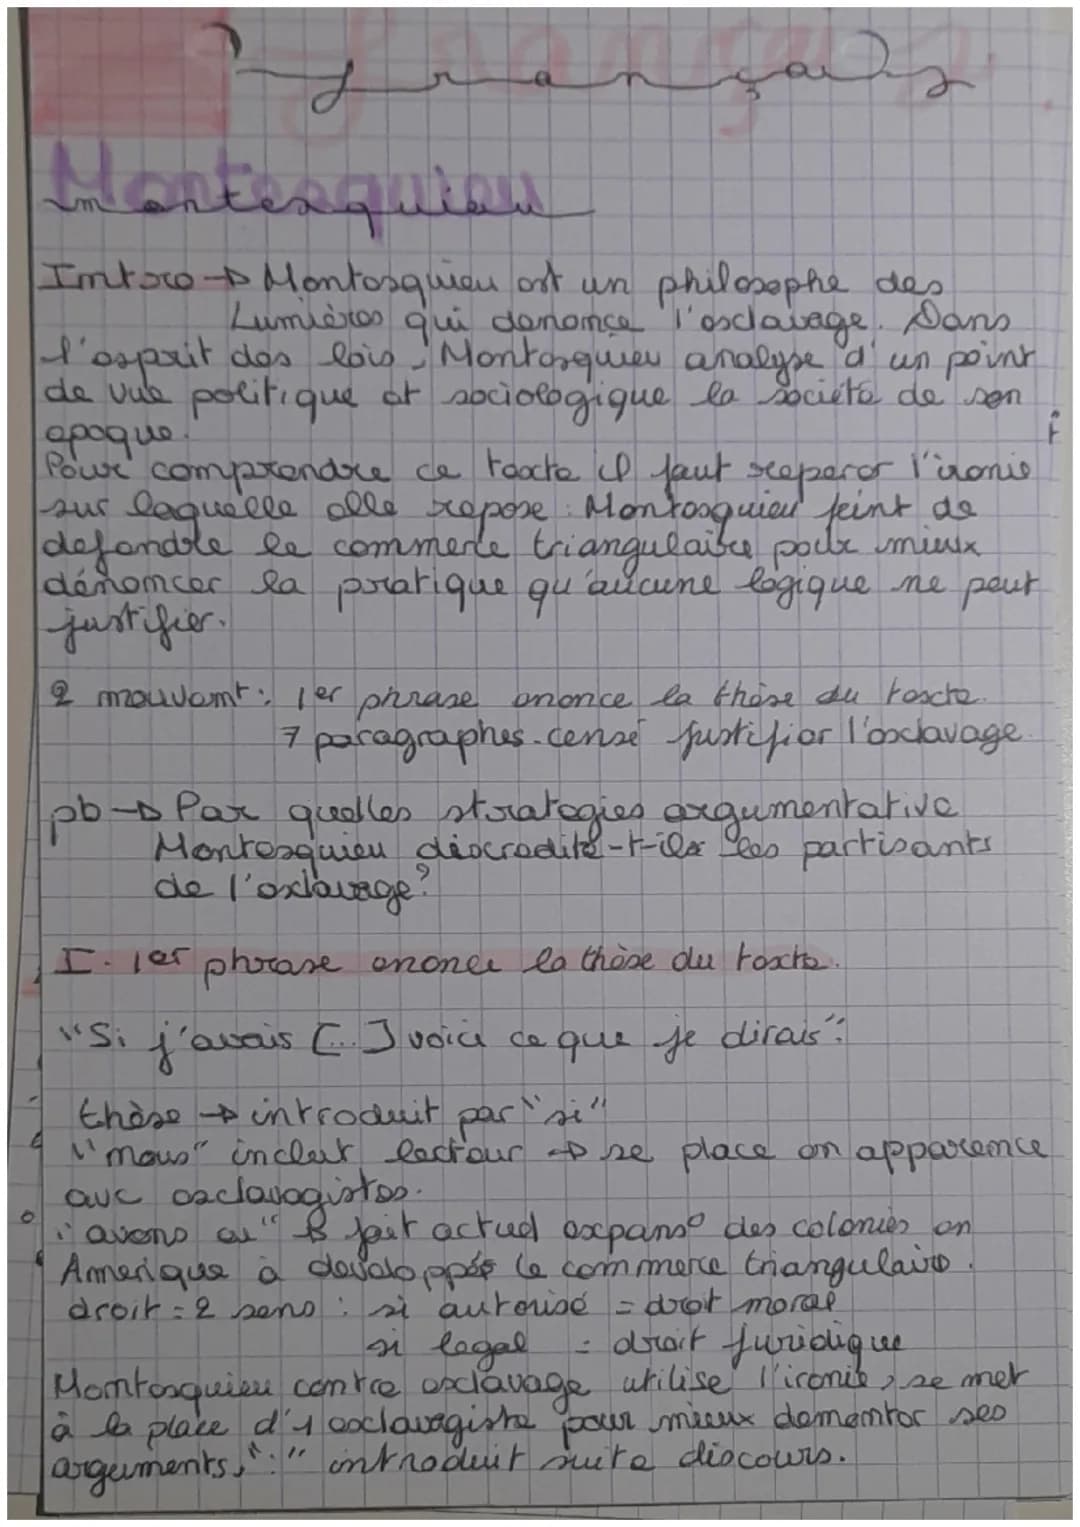 français
Montesquieu
Intro → Montesquieu est un philosophe des
Lumières qui denonce l'esclavage. Dans
l'esprit des lois, Montesquieu analyse d'un point
de vue politique et sociologique la société de son
epoque.
Pour comprendre ce texte il faut reperer l'ironie
sur laquelle elle repose : Montesquieu feint de
defendre le commerce triangulaire pour mieux
dénoncer la pratique qu'aucune logique ne peut
justifier.
2 mouvement : 1er phrase enonce la thèse du texte.
7 paragraphes censé justifier l'esclavage.
pb → Par quelles strategies argumentative
Montesquieu discredite-t-il les partisants
de l'esclavage?
I. 1er phrase enonce la thèse du texte.
"Si j'avais [...] voici ce que je dirais":
thèse → introduit par "si"
"nous" inclut lecteur → se place en apparence
avc esclavagistes.
"avons eu" fait actuel expans° des colonies en
Amerique a developpés le commerce triangulaire.
droit = 2 sens : si autorisé = droit moral
si legal = droit juridique
Montesquieu contre esclavage utilise l'ironie, se met
à la place d'1 esclavagiste pour mieux dementer ses
arguments, ":" introduit suite discours.